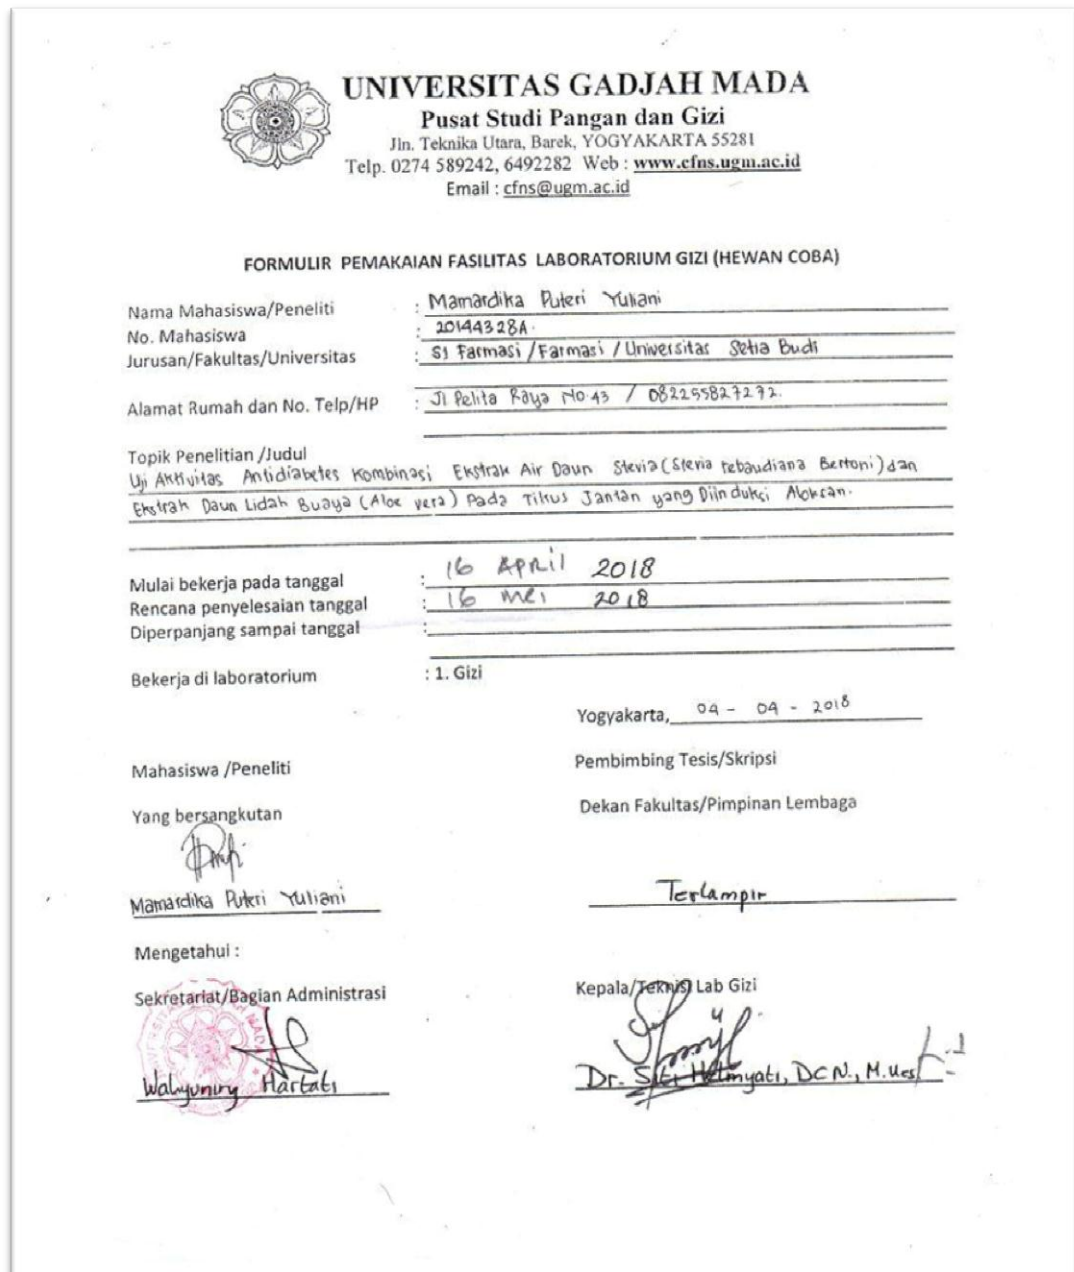 UNIVERSITAS GADJAH MADA
Pusat Studi Pangan dan Gizi
Jln. Teknika Utara, Barek, YOGYAKARTA 55281
Telp. 0274 589242, 6492282 Web : www.cfns.ugm.ac.id
Email : cfns@ugm.ac.id
FORMULIR PEMAKAIAN FASILITAS LABORATORIUM GIZI (HEWAN COBA)
Nama Mahasiswa/Peneliti : Mamardika Puteri Yuliani
No. Mahasiswa : 20144328A.
Jurusan/Fakultas/Universitas : S1 Farmasi / Farmasi / Universitas Setia Budi
Alamat Rumah dan No. Telp/HP : Jl Pelita Raya No.43 / 082255827272.
Topik Penelitian /Judul
Uji Aktivitas Antidiabetes Kombinasi Ekstrak Air Daun Stevia (Stevia rebaudiana Bertoni) dan
Ekstrak Daun Lidah Buaya (Aloe vera) Pada Tikus Jantan yang Diinduksi Aloksan.
Mulai bekerja pada tanggal : 16 APRIL 2018
Rencana penyelesaian tanggal : 16 Mei 2018
Diperpanjang sampai tanggal :
Bekerja di laboratorium : 1. Gizi
Yogyakarta, 04 - 04 - 2018
Mahasiswa /Peneliti
Pembimbing Tesis/Skripsi
Yang bersangkutan
Dekan Fakultas/Pimpinan Lembaga
Mamardika Puteri Yuliani
Terlampir
Mengetahui :
Sekretariat/Bagian Administrasi
Kepala/Teknisi Lab Gizi
Wahyuning Hartati
Dr. Siti Helmyati, DCN., M.Kes